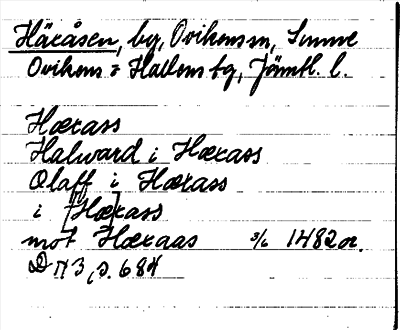 Häråsen, by, Ovikens sn, Sunne
Ovikens o Hallens tg, Jämtl. l.
Hærass
Halward i Hærass
Olaff i Hærass
i [Hæ]rass
mot Hæraas 3/6 1482 or.
DN 3, s. 684